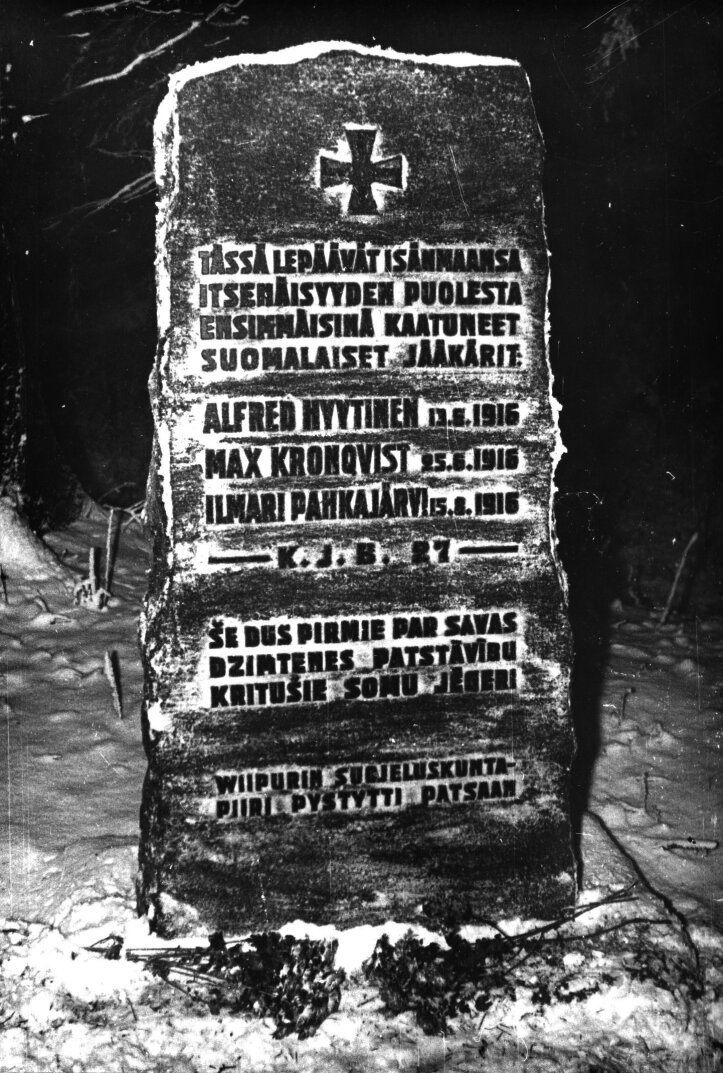 TÄSSÄ LEPÄÄVÄT ISÄNMAANSA
ITSENÄISYYDEN PUOLESTA
ENSIMMÄISINÄ KAATUNEET
SUOMALAISET JÄÄKÄRIT:
ALFRED HYYTINEN 13.6.1916
MAX KRONQVIST 25.6.1916
ILMARI PAHKAJÄRVI 15.8.1916
— K.J.B. 27 —
ŠE DUS PIRMIE PAR SAVAS
DZIMTENES PATSTĀVĪBU
KRITUŠIE SOMU JĒGERI
WIIPURIN SUOJELUSKUNTA-
PIIRI PYSTYTTI PATSAAN